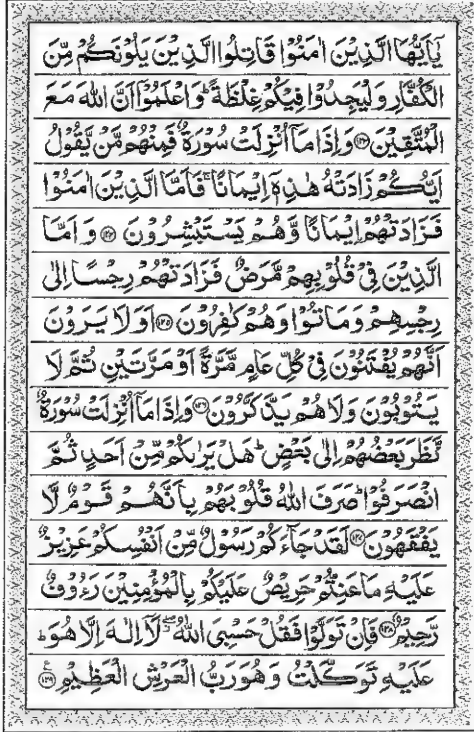 يٰۤاَيُّهَا الَّذِيْنَ اٰمَنُوْا قَاتِلُوا الَّذِيْنَ يَلُوْنَكُمْ مِّنَ
الْكُفَّارِ وَلْيَجِدُوْا فِيْكُمْ غِلْظَةً ؕ وَاعْلَمُوْۤا اَنَّ اللّٰهَ مَعَ
الْمُتَّقِيْنَ ﴿۱۲۳﴾ وَاِذَا مَاۤ اُنْزِلَتْ سُوْرَةٌ فَمِنْهُمْ مَّنْ يَّقُوْلُ
اَيُّكُمْ زَادَتْهُ هٰذِهٖۤ اِيْمَانًا ۚ فَاَمَّا الَّذِيْنَ اٰمَنُوْا
فَزَادَتْهُمْ اِيْمَانًا وَّهُمْ يَسْتَبْشِرُوْنَ ﴿۱۲۴﴾ وَاَمَّا
الَّذِيْنَ فِيْ قُلُوْبِهِمْ مَّرَضٌ فَزَادَتْهُمْ رِجْسًا اِلٰى
رِجْسِهِمْ وَمَاتُوْا وَهُمْ كٰفِرُوْنَ ﴿۱۲۵﴾ اَوَلَا يَرَوْنَ
اَنَّهُمْ يُفْتَنُوْنَ فِيْ كُلِّ عَامٍ مَّرَّةً اَوْ مَرَّتَيْنِ ثُمَّ لَا
يَتُوْبُوْنَ وَلَا هُمْ يَذَّكَّرُوْنَ ﴿۱۲۶﴾ وَاِذَا مَاۤ اُنْزِلَتْ سُوْرَةٌ
نَّظَرَ بَعْضُهُمْ اِلٰى بَعْضٍ ؕ هَلْ يَرٰىكُمْ مِّنْ اَحَدٍ ثُمَّ
انْصَرَفُوْا ؕ صَرَفَ اللّٰهُ قُلُوْبَهُمْ بِاَنَّهُمْ قَوْمٌ لَّا
يَفْقَهُوْنَ ﴿۱۲۷﴾ لَقَدْ جَآءَكُمْ رَسُوْلٌ مِّنْ اَنْفُسِكُمْ عَزِيْزٌ
عَلَيْهِ مَا عَنِتُّمْ حَرِيْصٌ عَلَيْكُمْ بِالْمُؤْمِنِيْنَ رَءُوْفٌ
رَّحِيْمٌ ﴿۱۲۸﴾ فَاِنْ تَوَلَّوْا فَقُلْ حَسْبِيَ اللّٰهُ ۖ لَاۤ اِلٰهَ اِلَّا هُوَ ؕ
عَلَيْهِ تَوَكَّلْتُ وَهُوَ رَبُّ الْعَرْشِ الْعَظِيْمِ ﴿۱۲۹﴾ ع